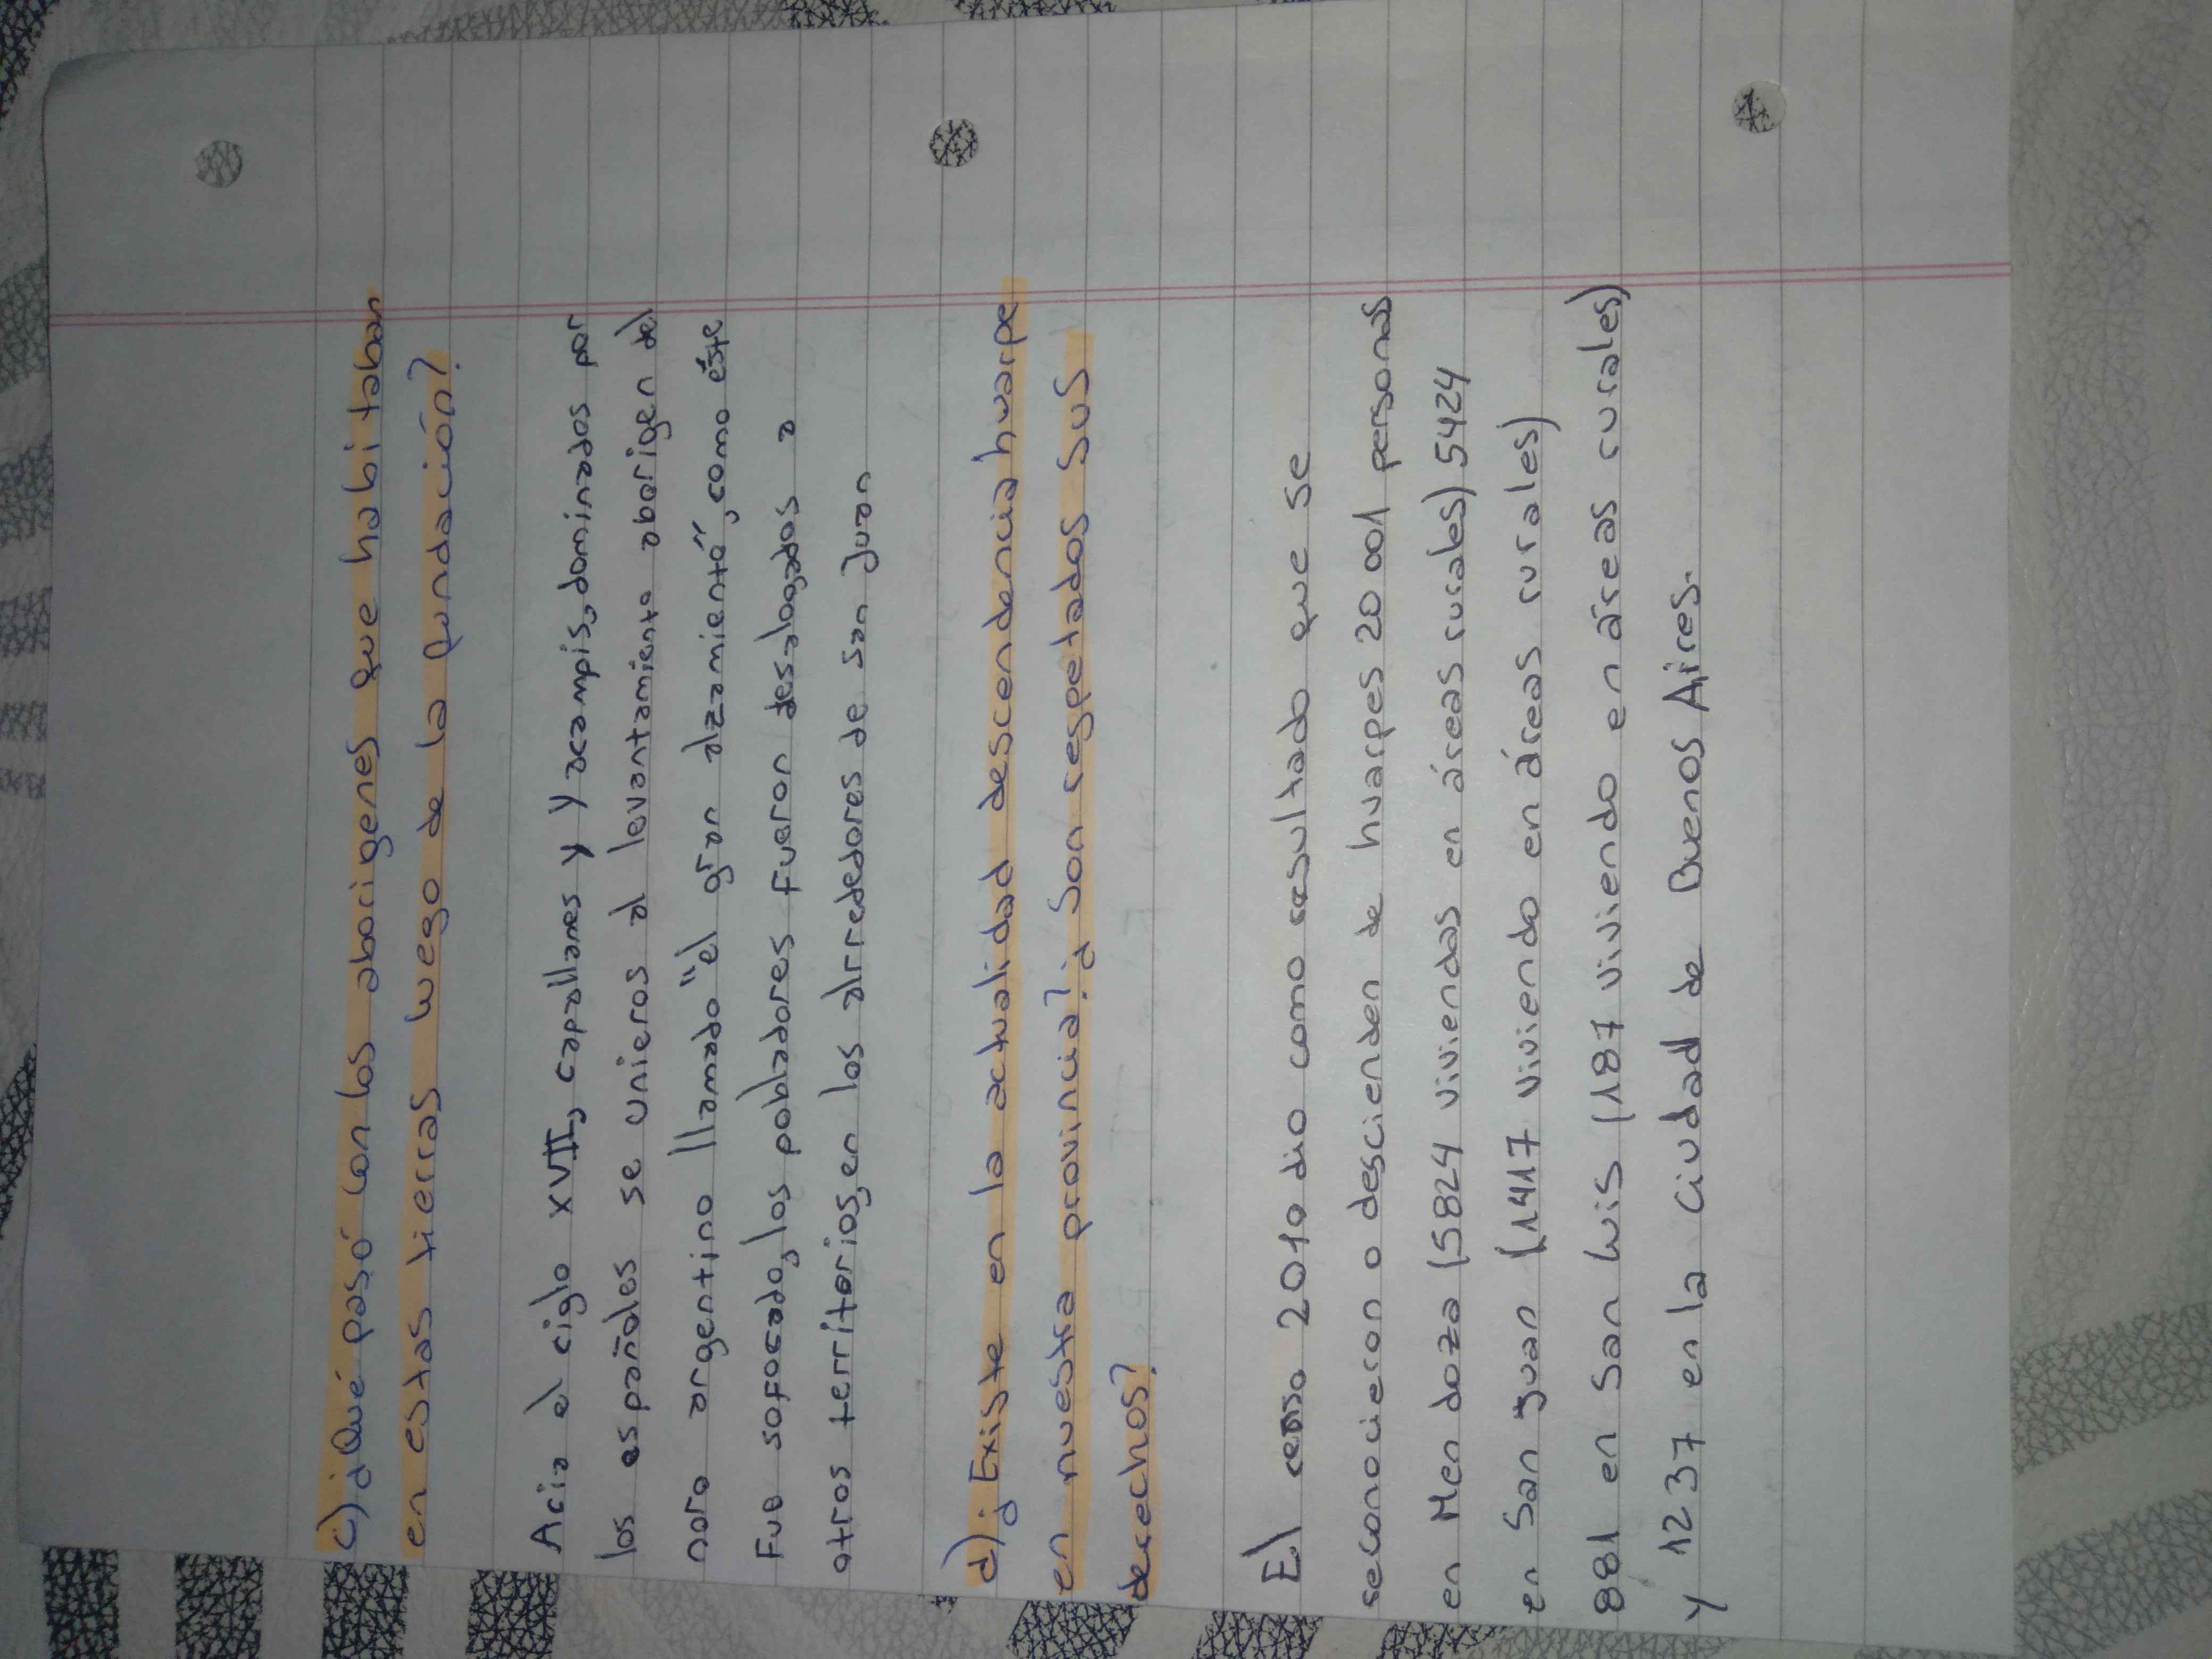 c) ¿Qué pasó con los aborigenes que habitaban
en estas tierras luego de la fundación?
Acia el ciglo XVII, capallanes y Yacampis, dominados por
los españoles se unieros al levantamiento aborigen del
noro argentino llamado "el gran alzamiento", como éste
Fue sofocado, los pobladores fueron desalogados a
otros territorios, en los alrrededores de san Juan
d) ¿Existe en la actualidad descendencia huarpe
en nuestra provincia? ¿Son respetados sus
derechos?
El censo 2010 dio como resultado que se
reconocieron o descienden de huarpes 20 001 personas
en Mendoza (5824 viviendas en áreas rurales) 5424
en San Juan (1417 viviendo en áreas rurales)
881 en San Luis (187 viviendo en áreas rurales)
y 1237 en la Ciudad de Buenos Aires.